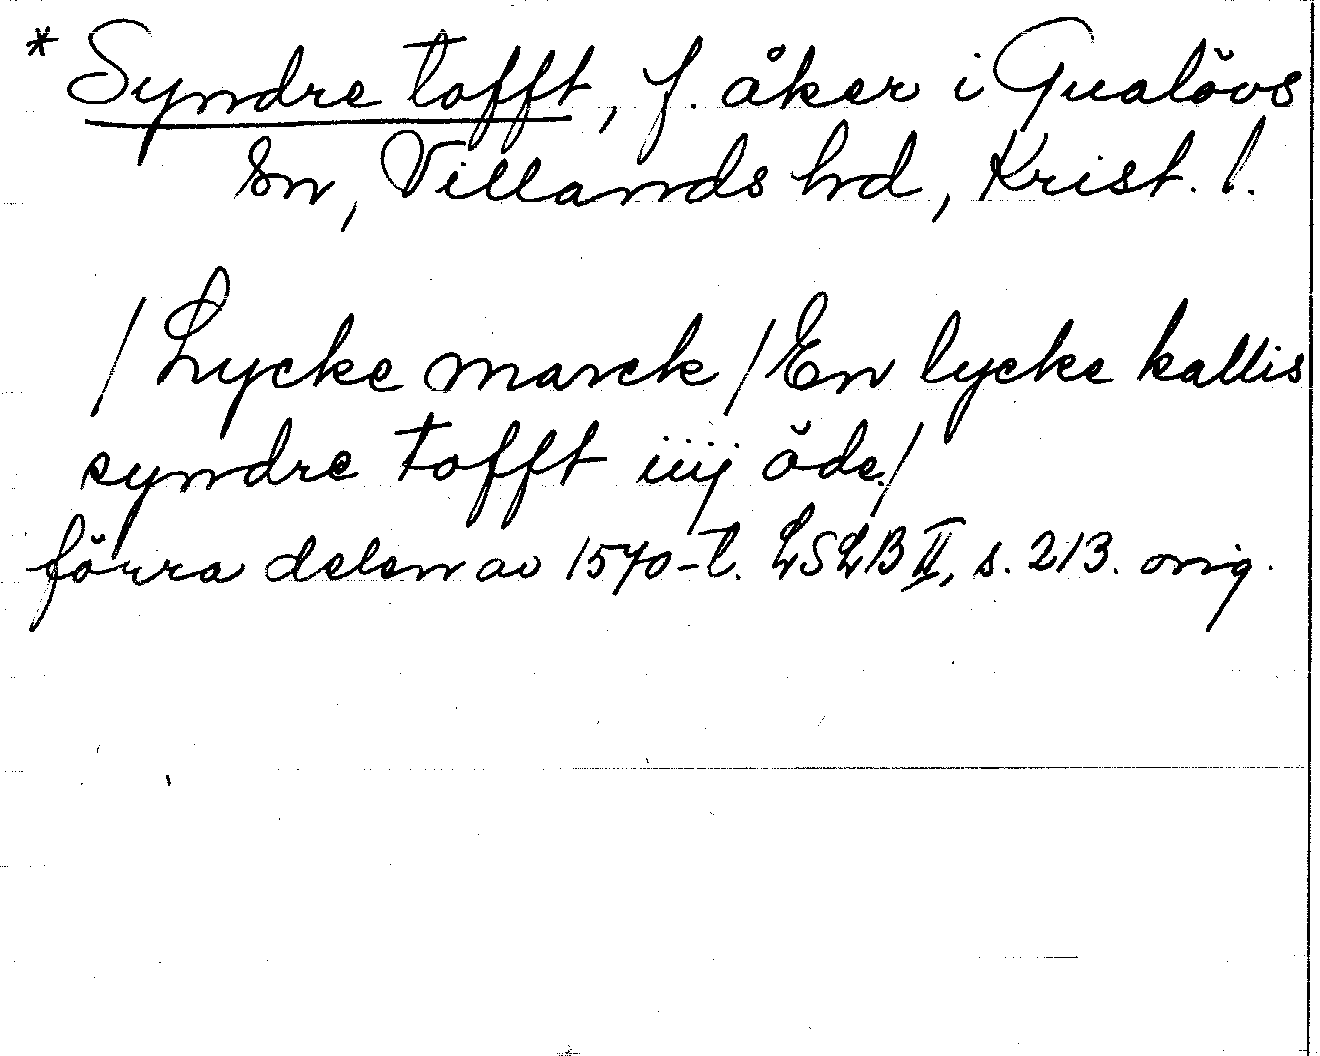 * Syndre tofft, f. åker i Gualövs
sn, Villands hd, Krist. l.
/ Lycke marck / En lycke kallis
syndre tofft iiij öde /
förra delen av 1570-t. LSLB II, s. 213. orig.